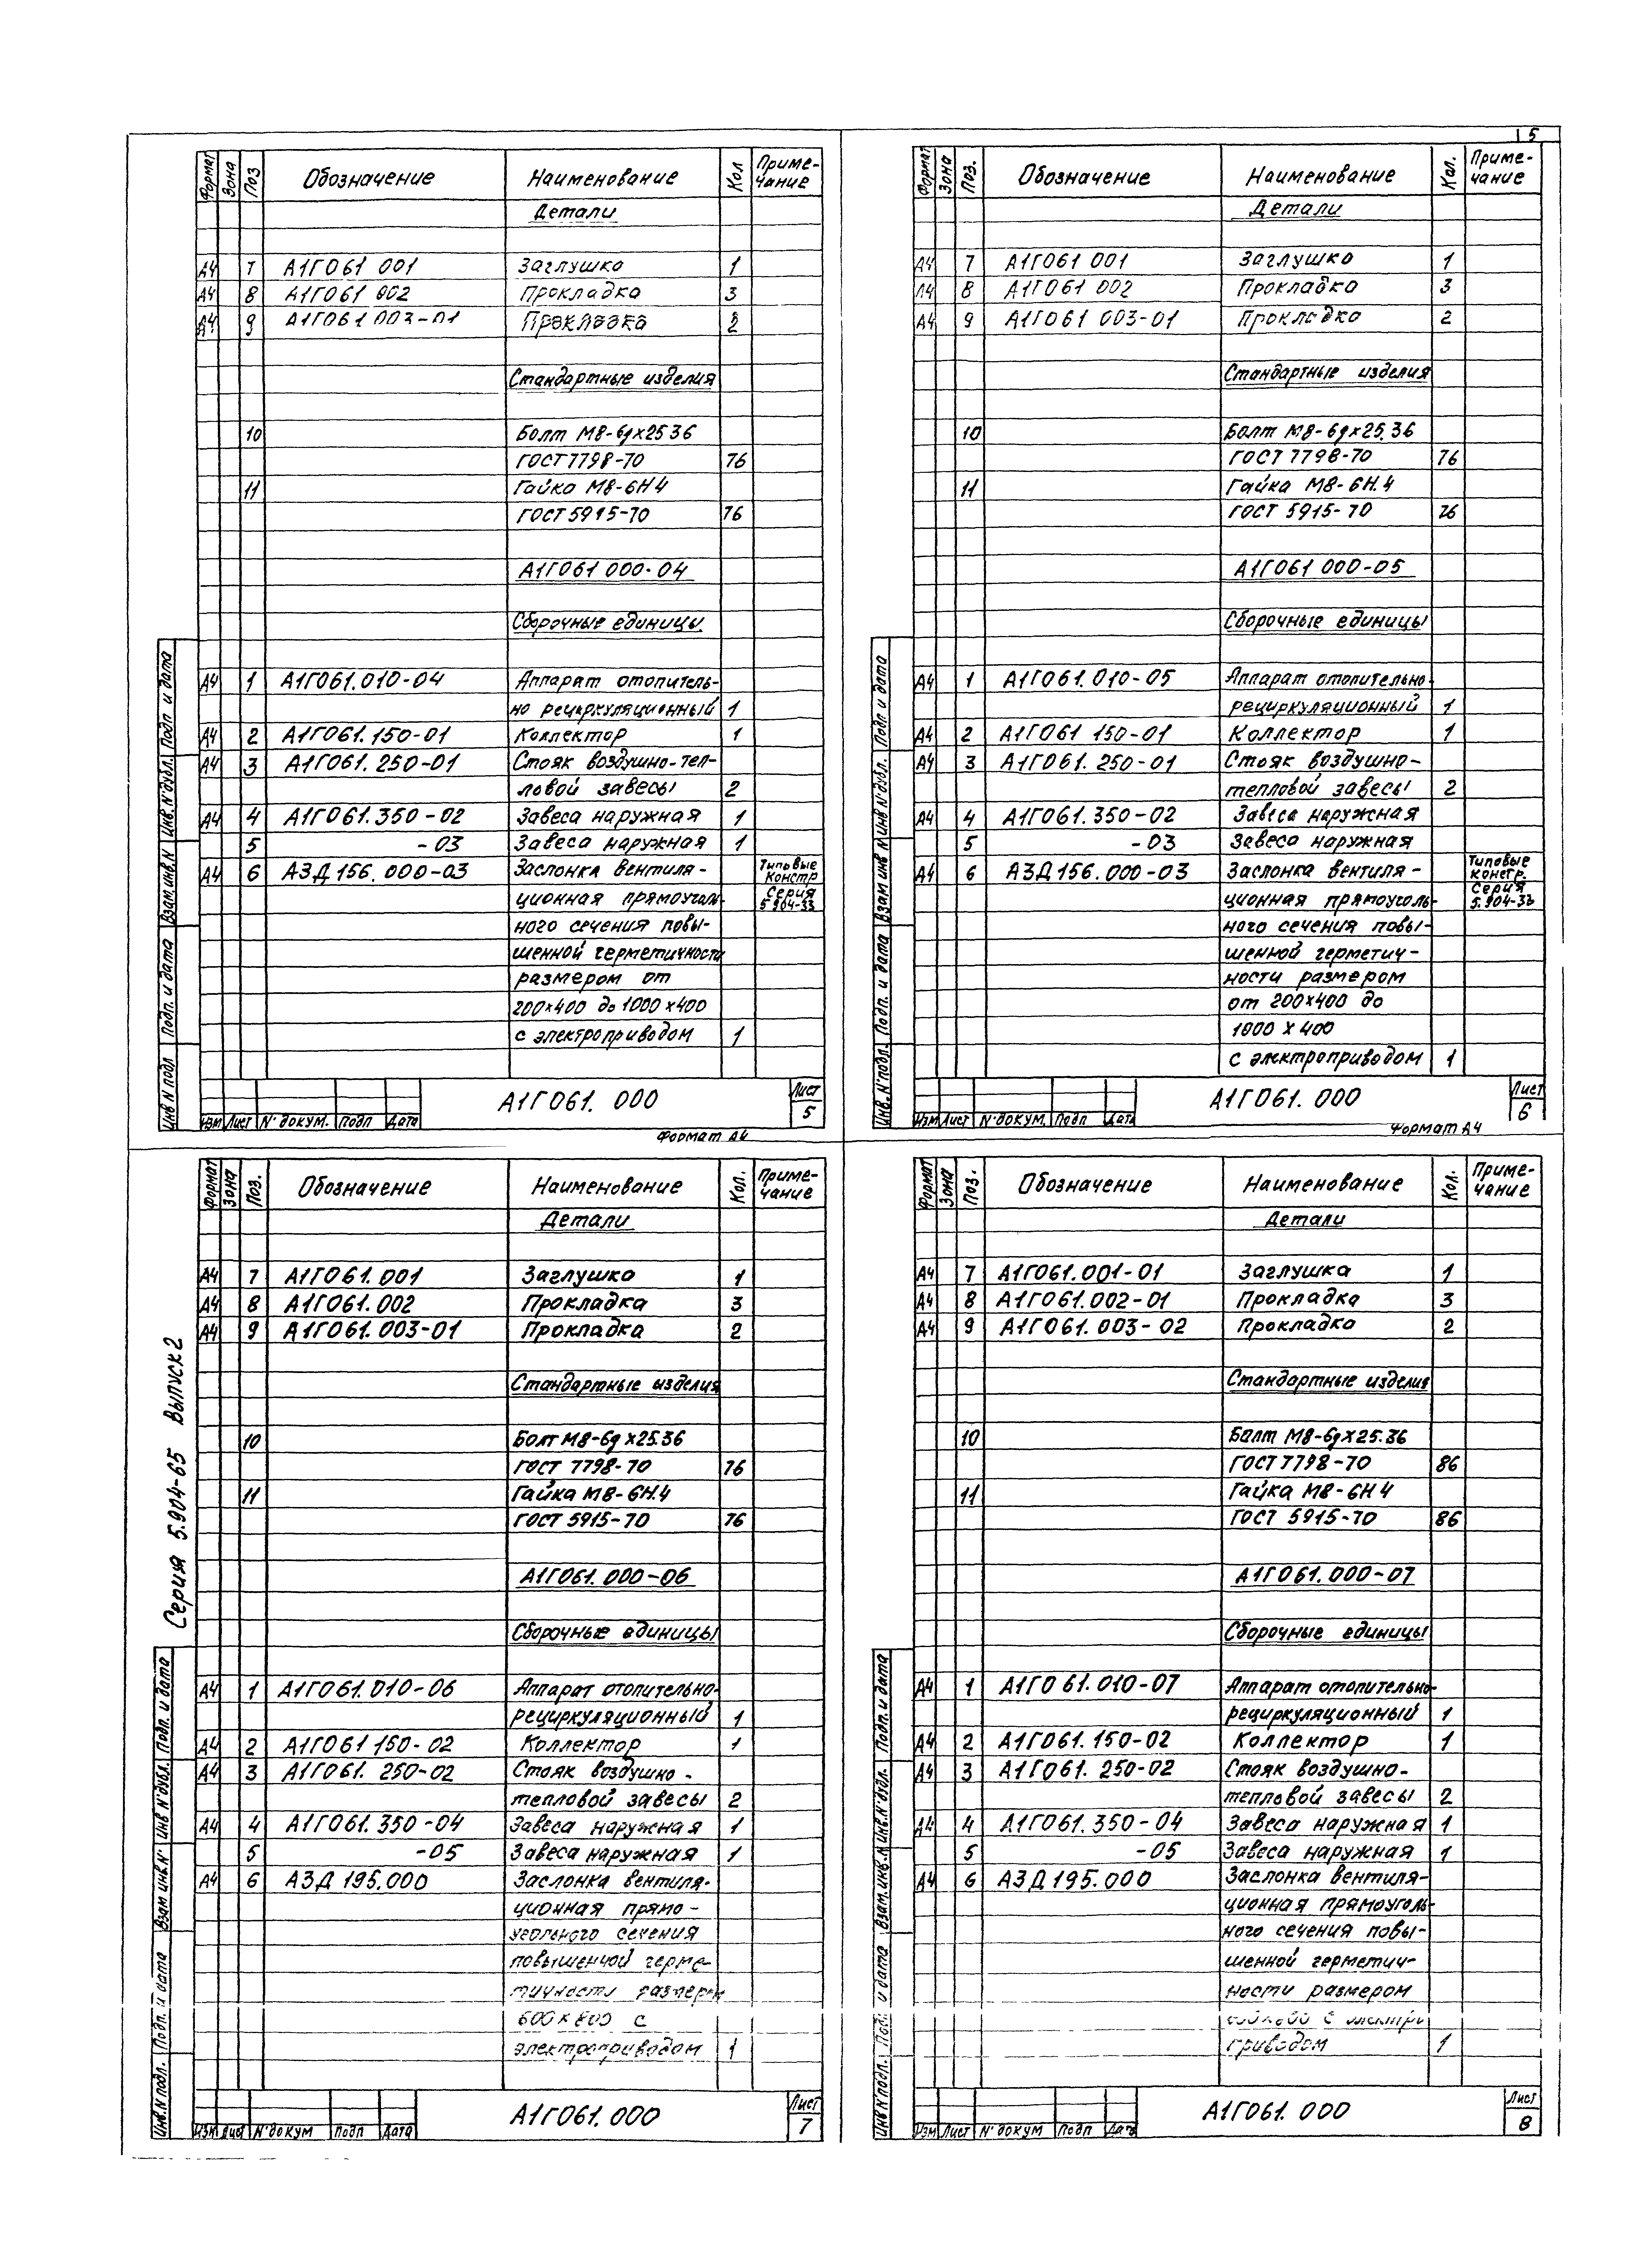 5
Формат Зона Поз Обозначение Наименование Кол Приме-
чание
Детали
А4 7 А1Г061 001 Заглушка 1
А4 8 А1Г061 002 Прокладка 3
А4 9 А1Г061 003-01 Прокладка 2
Стандартные изделия
10 Болт М8-6gх25 36
ГОСТ 7798-70 76
11 Гайка М8-6Н4
ГОСТ 5915-70 76
А1Г061 000-04
Сборочные единицы
А4 1 А1Г061.010-04 Аппарат отопитель-
но рециркуляционный 1
А4 2 А1Г061.150-01 Коллектор 1
А4 3 А1Г061.250-01 Стояк воздушно-теп-
ловой завесы 2
А4 4 А1Г061.350-02 Завеса наружная 1
5 -03 Завеса наружная 1
А4 6 АЗД156.000-03 Заслонка вентиля- Типовые
констр
ционная прямоуголь- Серия
5.904-33
ного сечения повы-
шенной герметичности
размером от
200х400 до 1000х400
с электроприводом 1
Инв N подл Подп. и дата Взам.инв.N Инв.N°дубл. Подп и дата
Изм Лист N°докум. Подп Дата
А1Г061. 000
Лист
5
Формат А4
Формат Зона Поз. Обозначение Наименование Кол. Приме-
чание
Детали
А4 7 А1Г061 001 Заглушка 1
А4 8 А1Г061 002 Прокладка 3
А4 9 А1Г061 003-01 Прокладка 2
Стандартные изделия
10 Болт М8-6gх25.36
ГОСТ 7798-70 76
11 Гайка М8-6Н.4
ГОСТ 5915-70 76
А1Г061 000-05
Сборочные единицы
А4 1 А1Г061.010-05 Аппарат отопительно-
рециркуляционный 1
А4 2 А1Г061 150-01 Коллектор 1
А4 3 А1Г061.250-01 Стояк воздушно-
тепловой завесы 2
А4 4 А1Г061.350-02 Завеса наружная
5 -03 Завеса наружная
А4 6 АЗД156.000-03 Заслонка вентиля- Типовые
констр.
ционная прямоуголь- Серия
5.904-33
ного сечения повы-
шенной герметич-
ности размером
от 200х400 до
1000 х 400
с электроприводом 1
Инв.N°подл. Подп. и дата Взам инв N Инв N°дубл. Подп и дата
Изм Лист N°докум. Подп Дата
А1Г061. 000
Лист
6
Формат А4
Серия 5.904-65 Выпуск 2
Формат Зона Поз. Обозначение Наименование Кол. Приме-
чание
Детали
А4 7 А1Г061.001 Заглушка 1
А4 8 А1Г061.002 Прокладка 3
А4 9 А1Г061.003-01 Прокладка 2
Стандартные изделия
10 Болт М8-6gх25.36
ГОСТ 7798-70 76
11 Гайка М8-6Н.4
ГОСТ 5915-70 76
А1Г061.000-06
Сборочные единицы
А4 1 А1Г061.010-06 Аппарат отопительно-
рециркуляционный 1
А4 2 А1Г061 150-02 Коллектор 1
А4 3 А1Г061. 250-02 Стояк воздушно-
тепловой завесы 2
А4 4 А1Г061.350-04 Завеса наружная 1
5 -05 Завеса наружная 1
А4 6 АЗД 195.000 Заслонка вентиля-
ционная прямо-
угольного сечения
повышенной герме-
тичности размером
600х800 с
электроприводом 1
Инв.N подл. Подп. и дата Взам инв N° Инв N°дубл. Подп. и дата
Изм Лист N°докум Подп Дата
А1Г061. 000
Лист
7
Формат Зона Поз. Обозначение Наименование Кол. Приме-
чание
Детали
А4 7 А1Г061.001-01 Заглушка 1
А4 8 А1Г061.002-01 Прокладка 3
А4 9 А1Г061.003-02 Прокладка 2
Стандартные изделия
10 Болт М8-6gх25.36
ГОСТ 7798-70 86
11 Гайка М8-6Н4
ГОСТ 5915-70 86
А1Г061.000-07
Сборочные единицы
А4 1 А1Г061.010-07 Аппарат отопительно-
рециркуляционный 1
А4 2 А1Г061.150-02 Коллектор 1
А4 3 А1Г061.250-02 Стояк воздушно-
тепловой завесы 2
А4 4 А1Г061.350-04 Завеса наружная 1
5 -05 Завеса наружная 1
А4 6 АЗД195.000 Заслонка вентиля-
ционная прямоуголь-
ного сечения повы-
шенной герметич-
ности размером
с электро
приводом 1
Инв N°подл. Подп. и дата Взам.инв.N Инв.N°дубл. Подп. и дата
Изм Лист N°докум Подп Дата
А1Г061. 000
Лист
8